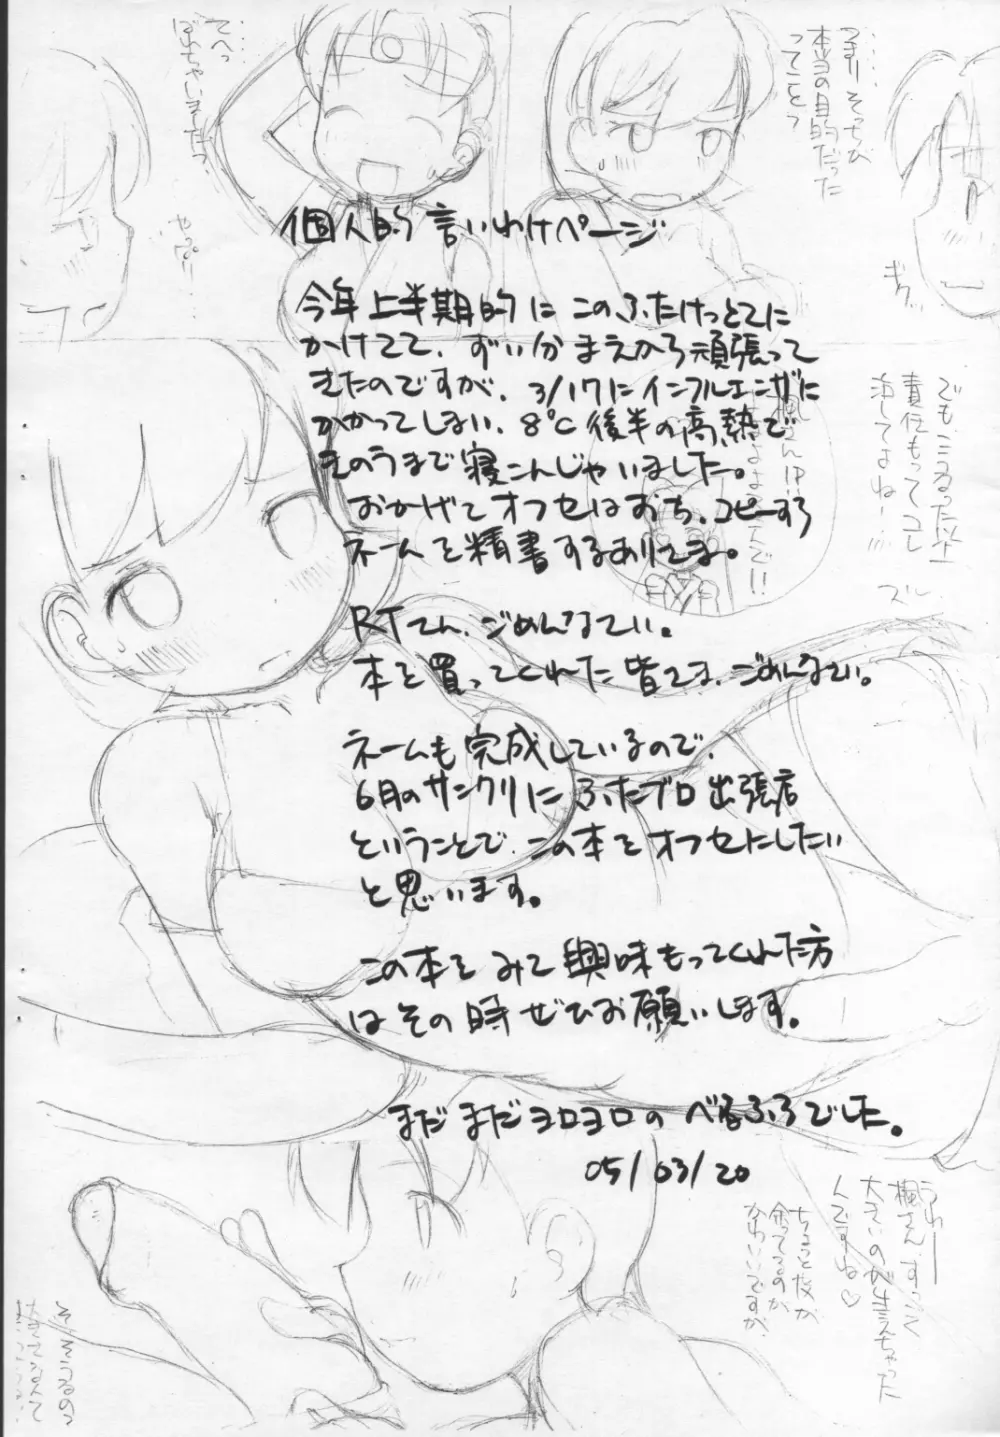 個人的言いわけページ
今年上半期的にこのふたけっとさに
かけてて、ずい分まえから頑張って
きたのですが、3/17にインフルエンザに
かかってしまい、8℃後半の高熱で
きのうまで寝こんじゃいました。
おかげでオフセはおち、コピーすら
ネームを精書するありさま。
RTさん、ごめんなさい。
本を買ってくれた皆さま、ごめんなさい。
ネームも完成しているので、
6月のサンクリにふたブロ出張店
ということで、この本をオフセにしたい
と思います。
この本をみて興味もってくれた方
はその時ぜひお願いします。
まだまだヨロヨロのべるふろでした。
05/03/20
つまりそっちが
本当の目的だった
ってこと?
でも
責任もって
してよね
うわーー
楓さん、すっごく
大きいのが生えちゃった
んですね♡
ちょっと皮が
余ってるのが
かわいいですが
そ、そうなの?